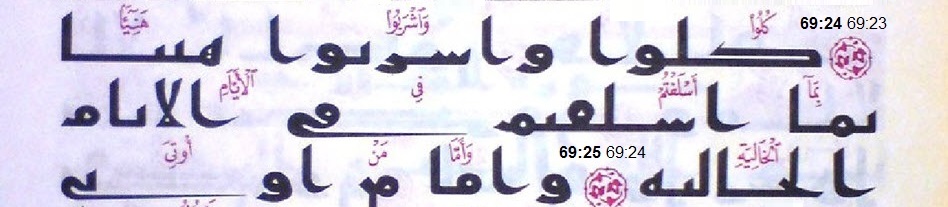 69:24 69:23 كُلُوا وَاشْرَبُوا هَنِيئًا
كلوا واسربوا هنيا
بِمَآ أَسْلَفْتُمْ فِي ٱلْأَيَّامِ
بما اسلفتم في الايام
ٱلْخَالِيَةِ 69:25 69:24 وَأَمَّا مَنْ أُوتِيَ
الخاليه واما من اوتي